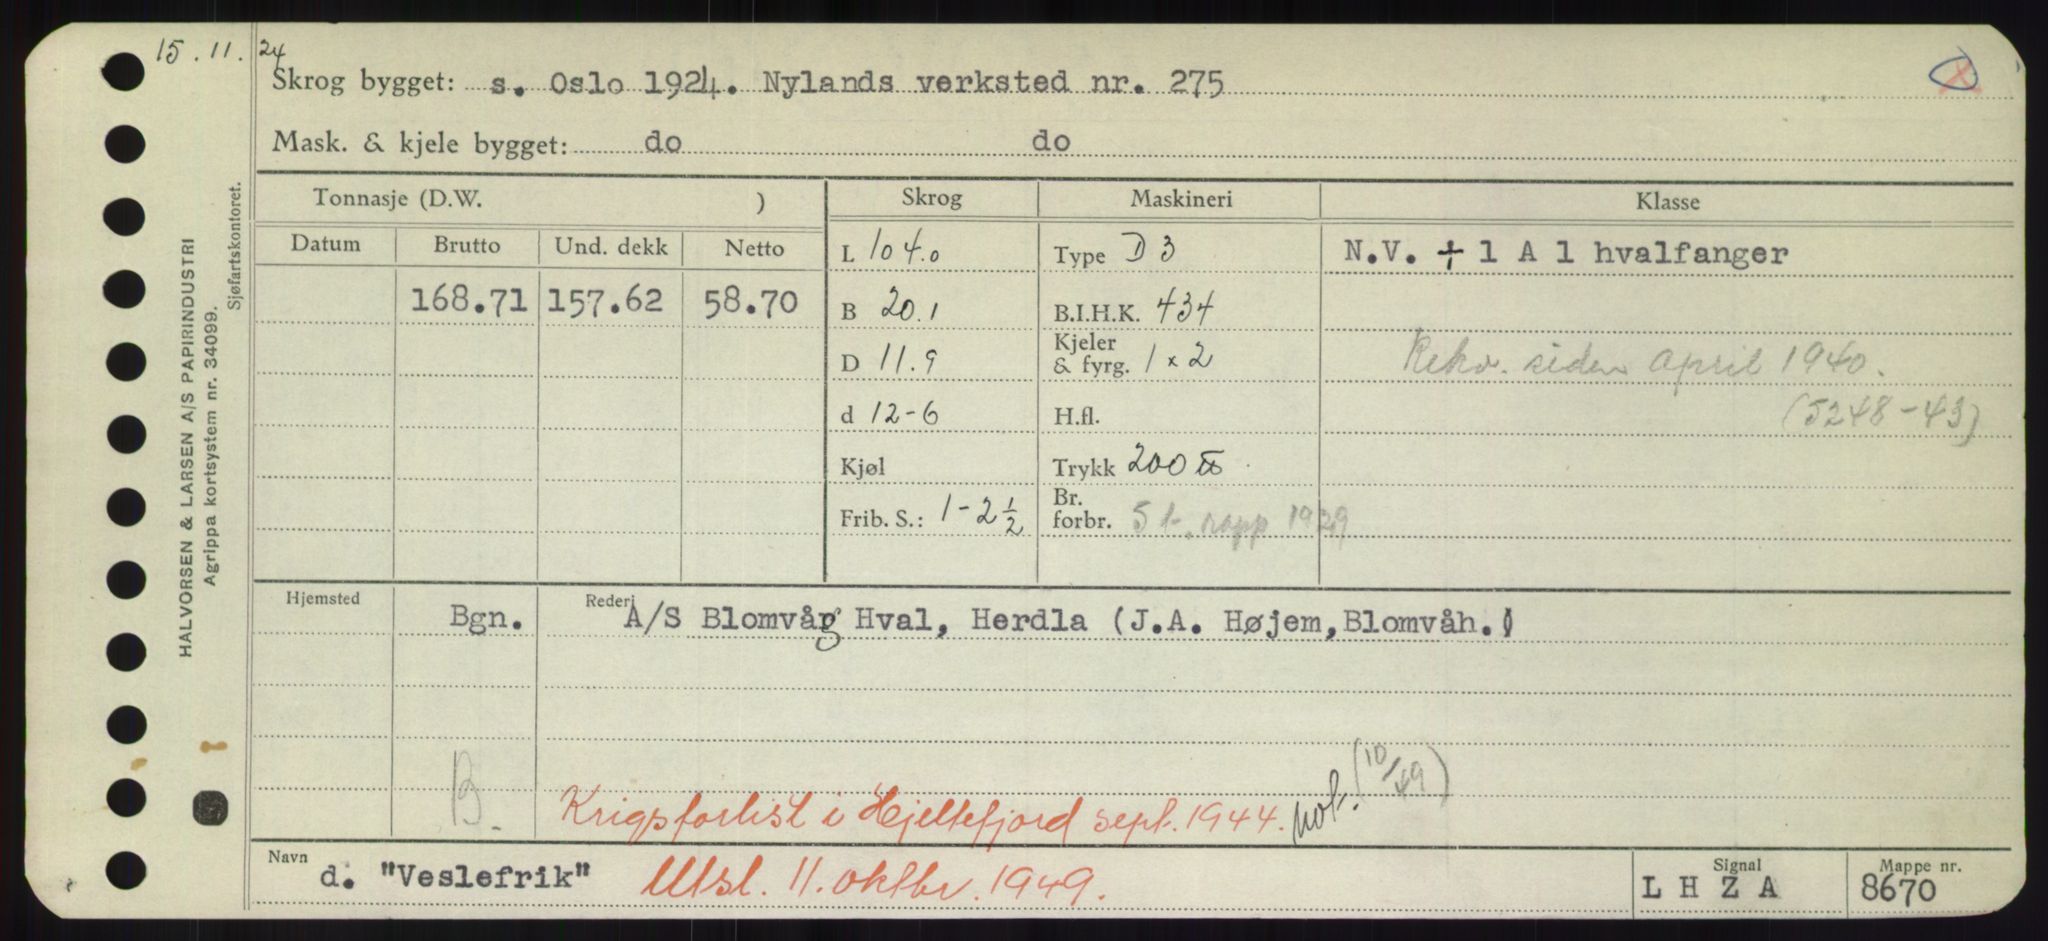 15.11.24
Skrog bygget: s. Oslo 1924. Nylands verksted nr. 275
Mask. & kjele bygget: do do
Tonnasje (D.W. ) Skrog Maskineri Klasse
Datum Brutto Und. dekk Netto
168.71 157.62 58.70
L 104.0
B 20.1
D 11.9
d 12-6
Kjøl
Frib. S.: 1-2½
Type D 3
B.I.H.K. 434
Kjeler
& fyrg. 1 x 2
H.fl.
Trykk 200
Br.
forbr. 5 t. rapp 1929
N.V. + 1 A 1 hvalfanger
Rekv. siden april 1940.
(5248-43)
Hjemsted Rederi
Bgn. A/S Blomvåg Hval, Herdla (J.A. Højem, Blomvåh.)
B.
Krigsforlist i Hjeltefjord sept. 1944. not. (10/49)
Navn Signal Mappe nr.
d. "Veslefrik" Utsl. 11. oktbr. 1949. L H Z A 8670
HALVORSEN & LARSEN A/S PAPIRINDUSTRI
Agrippa kortsystem nr. 34099.
Sjøfartskontoret.